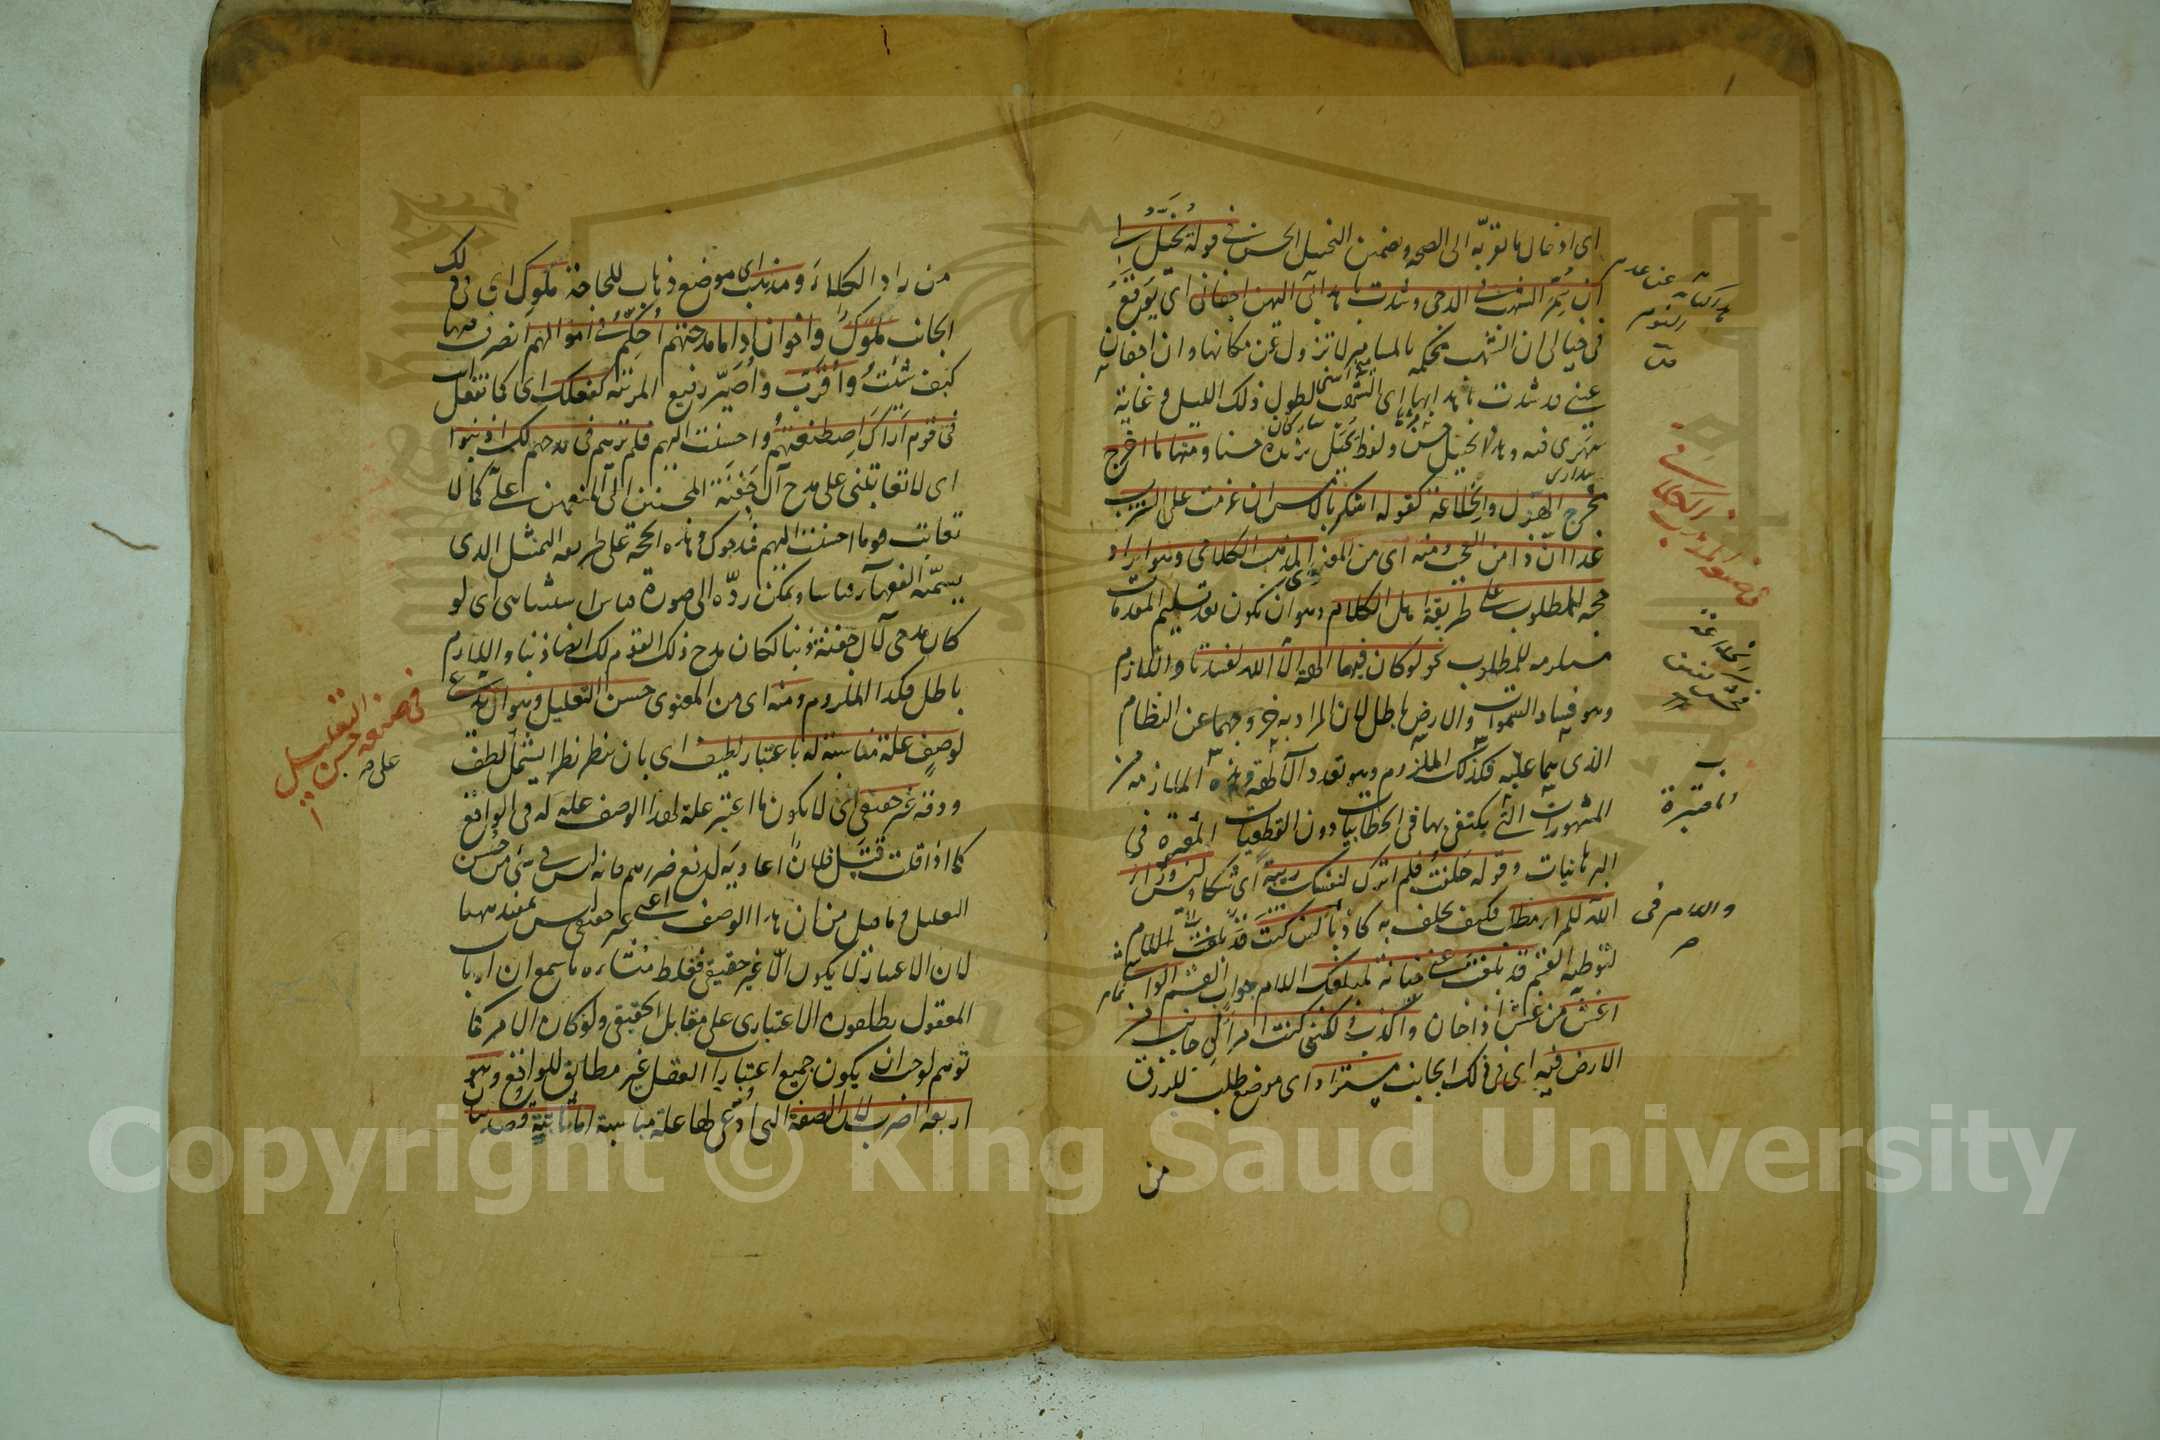 اى ادخال ما يقربه الى الصحة وتضمن التخييل الحسن فى قوله يُخَيَّلُ لى
ان سُمِّرَ الشهب فى الدجى وشدت باهدابى اليهن اجفانى اى يوقع
فى خيالى ان الشهب محكمة بالمسامير لا تزول عن مكانها وان اجفان
عينى قد شدت باهدابها الى الشهب لطول ذلك الليل وغاية
سهرى فيه وهذا تخييل حسن ولفظ يخيل يزيده حسنا ومنها ما اخرج
مخرج الهزل والخلاعة كقوله اسكر بالامس ان عزمت على الشرب
غدا ان ذا من العجب ومنه اى من المعنوى المذهب الكلامى وهو ايراد
حجة للمطلوب على طريقة اهل الكلام وهو ان يكون بعد تسليم المقدمات
مستلزمة للمطلوب نحو لو كان فيهما الهة الا الله لفسدتا واللازم
وهو فساد السموات والارض باطل لان المراد به خروجهما عن النظام
الذى هما عليه فكذلك الملزوم وهو تعدد الآلهة وهذه الملازمة من
المشهورات التى يكتفى بها فى الخطابيات دون القطعيات المعتبرة فى
البرهانيات وقوله حلفت فلم اترك لنفسك ريبة اى شكا وليس وراء
الله للمرء مطلب فكيف يحلف به كاذبا لئن كنت قد بلغت اللام
لتوطئة القسم قد بلغت عنى خيانة لمبلغك اللام جواب القسم الواشى
اغش من غش اذا خان واكذب ولكننى كنت امرأ لى جانب من
الارض فيه اى فى ذلك الجانب مستراد اى موضع طلب للرزق
من
هذا كناية عن عدم
النوم
فى صنعة المذهب الكلامى
الخلاعة
المعتبرة
واللام فى
من راد الكلاء ومذهب اى موضع ذهاب للحاجة ملوك اى فى ذلك
الجانب ملوك واخوان اذا ما مدحتهم اُحَكَّمُ فى اموالهم اتصرف فيها
كيف شئت وأقرب وأصير رفيع المرتبة كفعلك اى كما تفعل انت
فى قوم اَراك اصطنعتهم واحسنت اليهم فلم ترهم فى مدحهم لك اذنبوا
اى لا تعاتبنى على مدح آل جفنة المحسنين الىّ المنعمين علىّ كما لا
تعاتب قوما احسنت اليهم فمدحوك وهذه الحجة على طريقة التمثيل الذى
يسميه الفقهاء قياسا ويمكن ردّه الى صورة قياس استثنائى اى لو
كان مدحى لآل جفنة ذنبا لكان مدح ذلك القوم لك ايضا ذنبا واللازم
باطل فكذا الملزوم ومنه اى من المعنوى حسن التعليل وهو ان يدعى
لوصف علة مناسبة له باعتبار لطيف اى بان ينظر نظرا يشتمل لطف
ودقة غير حقيقى اى لا يكون ما اعتبر علة لهذا الوصف علة له فى الواقع
كما اذا قلت قتل فلان اعاديه لدفع ضررهم فانه ليس فى شئ من حسن
التعليل وما قيل من ان هذا الوصف اعنى غير حقيقى ليس بمفيد ههنا
لان الاعتبار لا يكون الا غير حقيقى فغلط منشاؤه ما سمع ان ارباب
المعقول يطلقون الاعتبارى على مقابل الحقيقى ولو كان الامر كما
توهم لوجب ان يكون جميع اعتبارات العقل غير مطابق للواقع وهو
اربعة اضرب لان الصفة التى ادعى لها علة مناسبة اما ثابتة قصد
فى صنعة حسن التعليل
على